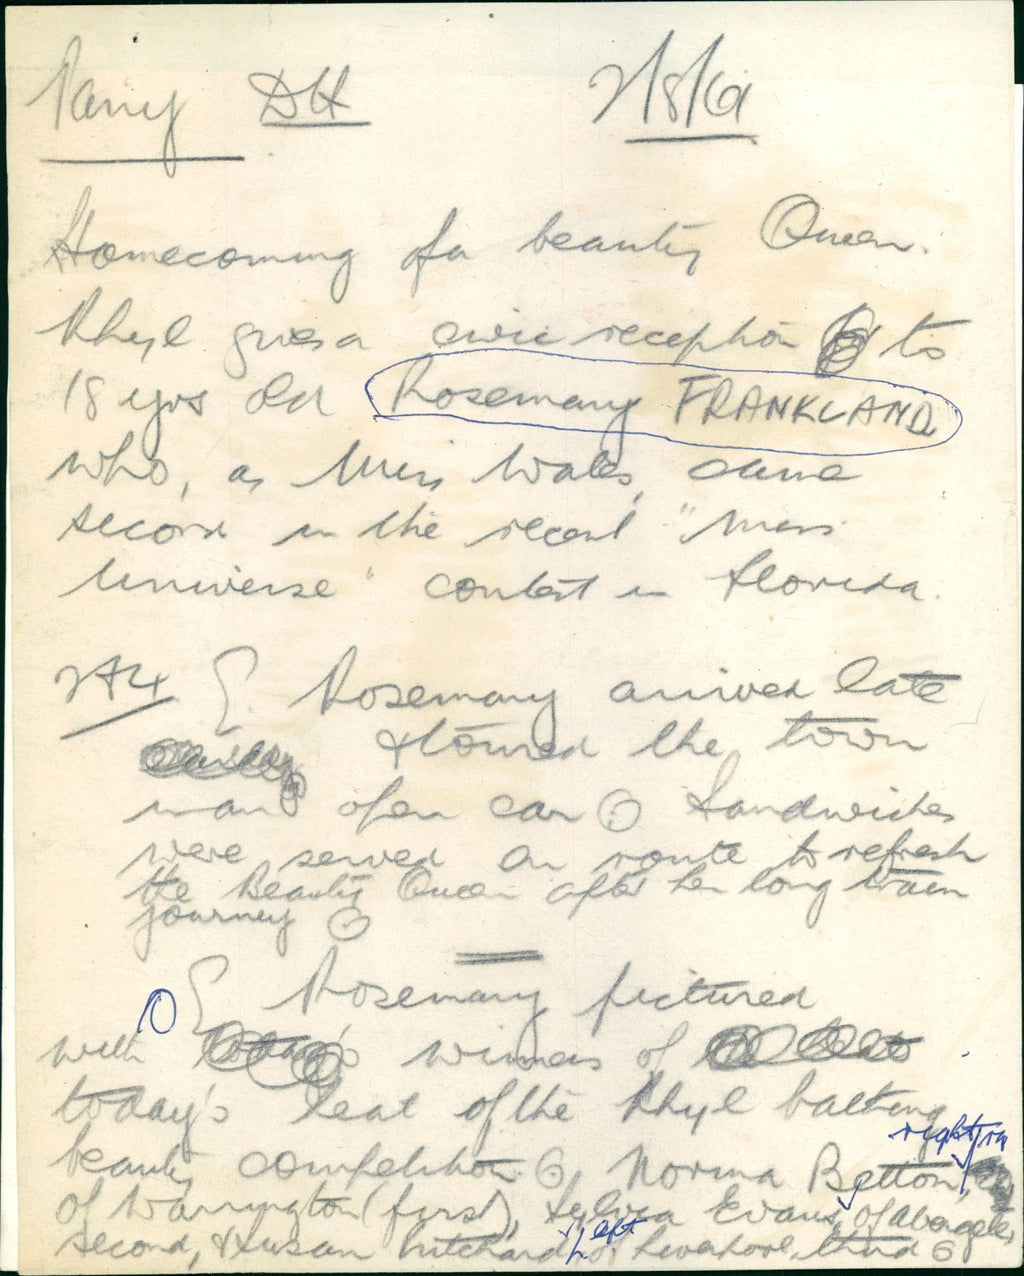 Parry DH 2/8/61
Homecoming of a beauty Queen.
Rhyl gives a civic reception to
18 yrs old Rosemary FRANKLAND
who, as Miss Wales, came
second in the recent "Miss
Universe" contest in Florida.
Rosemary arrived late
& toured the town
in an open car. Sandwiches
were served on route to refresh
the Beauty Queen after her long train
journey.
Rosemary pictured
with winners of
today's heat of the Rhyl bathing
right,
beauty competition. Norma Betton,
of Warrington (first), Sylvia Evans, of Abergele,
left
second, & Susan Pritchard, of Liverpool, third.